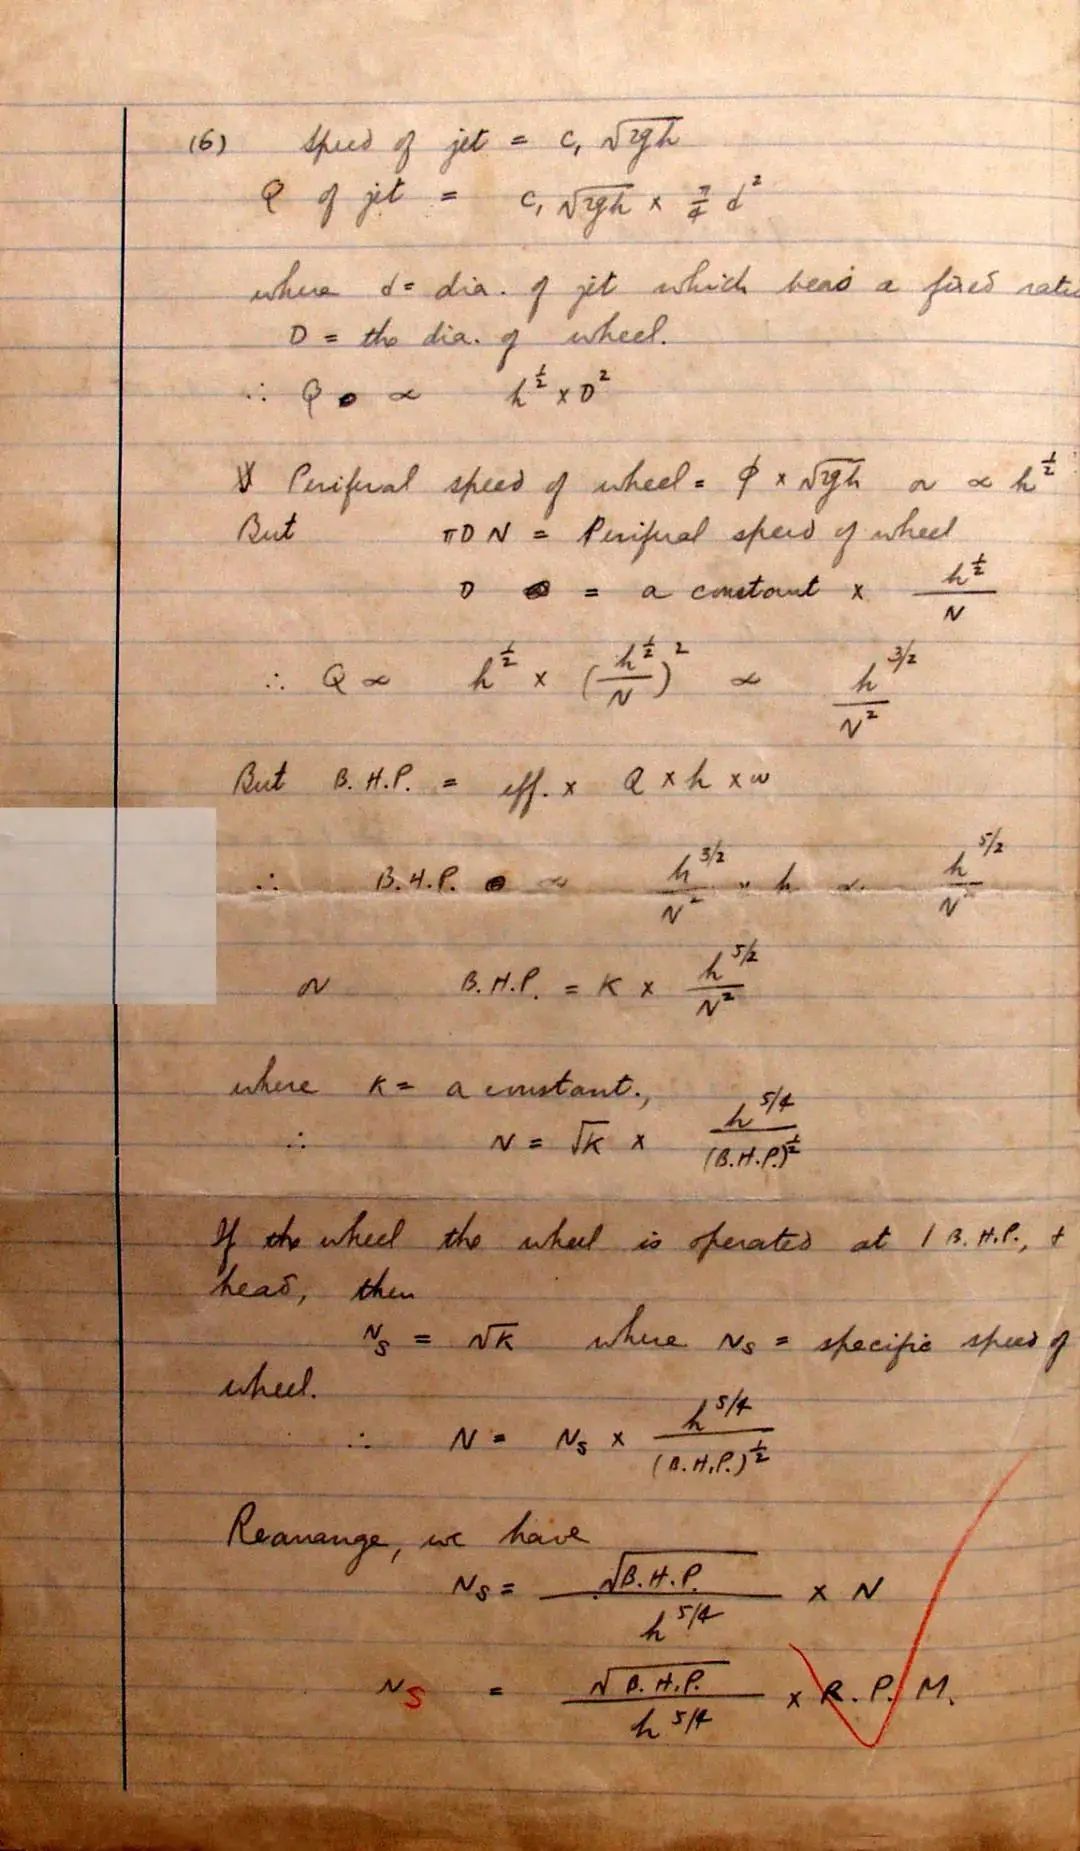 (6) Speed of jet = C₁ √2gh
Q of jet = C₁ √2gh × π/4 d²
where d = dia. of jet which bears a fixed ratio
D = the dia. of wheel.
∴ Q ∝ h^½ × D²
Periferal speed of wheel = φ × √2gh or ∝ h^½
But πDN = Periferal speed of wheel
D = a constant × h^½/N
∴ Q ∝ h^½ × (h^½/N)² ∝ h^3/2/N²
But B.H.P. = eff. × Q × h × w
∴ B.H.P. ∝ h^3/2/N² × h ∝ h^5/2/N²
or B.H.P. = K × h^5/2/N²
where K = a constant.,
∴ N = √K × h^5/4/(B.H.P.)^½
If the wheel the wheel is operated at 1 B.H.P., +
head, then
Ns = √K where Ns = specific speed of
wheel.
∴ N = Ns × h^5/4/(B.H.P.)^½
Rearrange, we have
Ns = √B.H.P./h^5/4 × N
Ns = √B.H.P./h^5/4 × R.P.M.